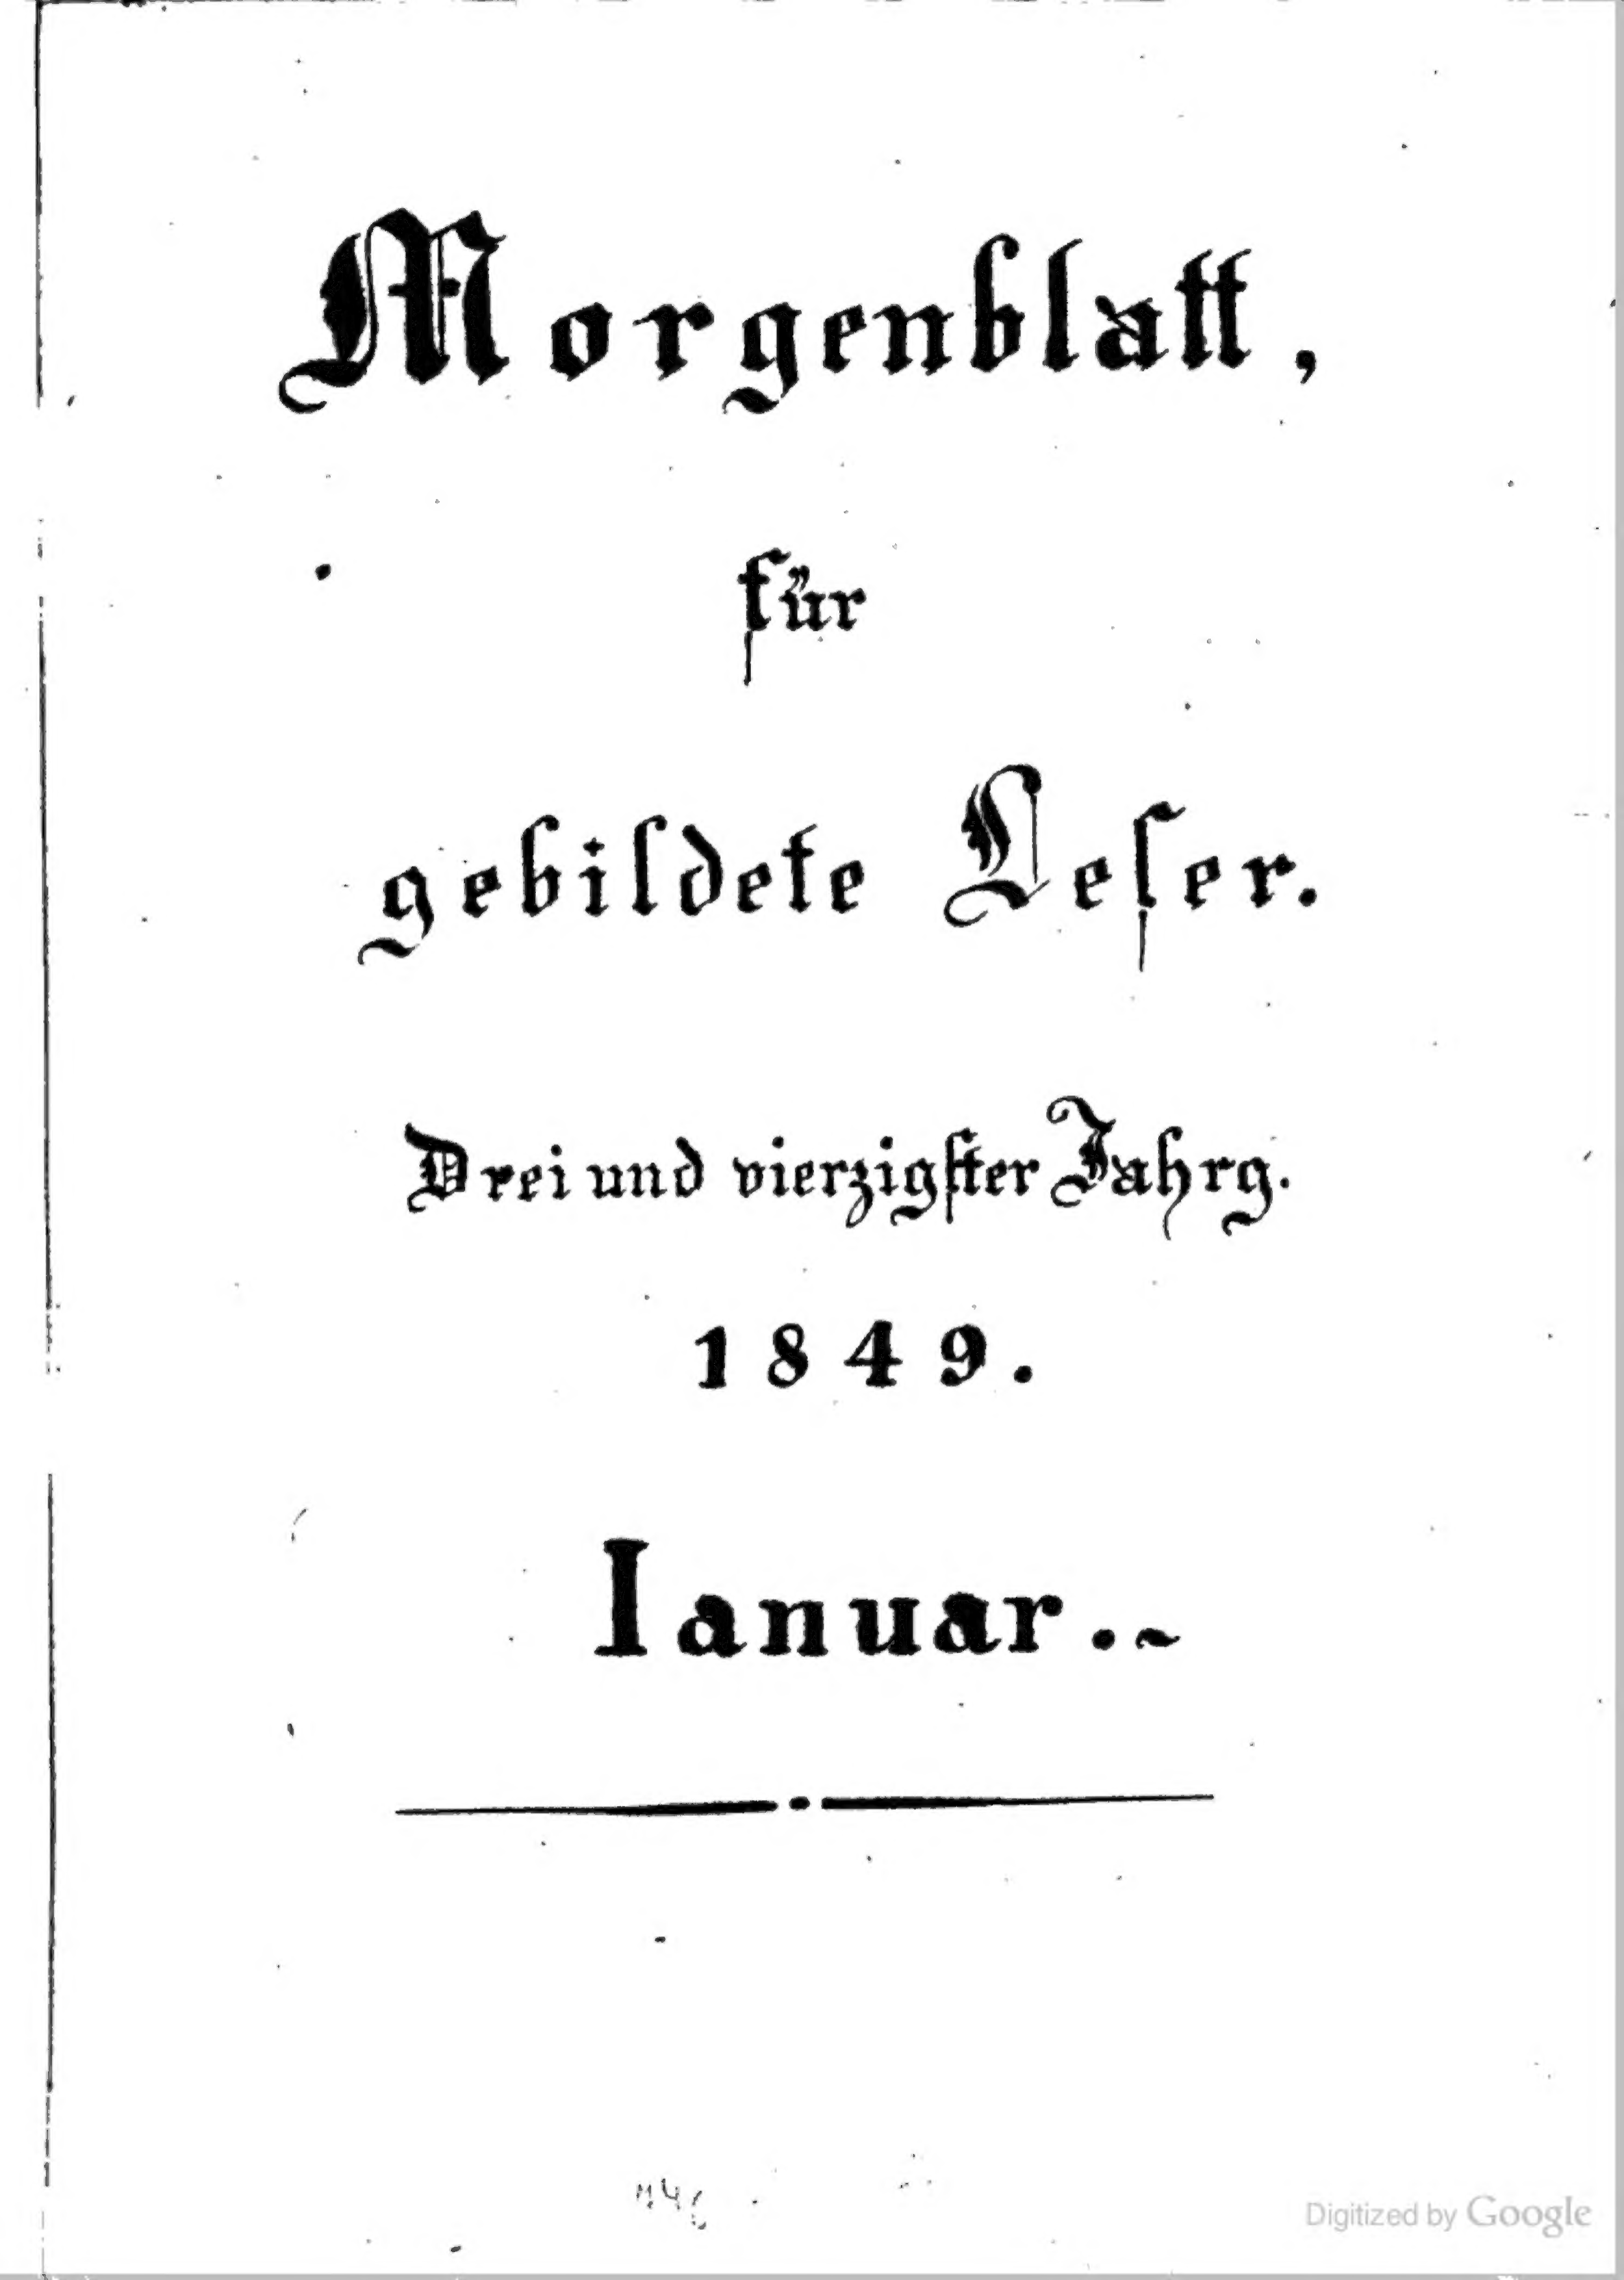 Morgenblatt,
für
gebildete Leſer.
Drei und vierzigſter Jahrg.
1849.
Ianuar..~
Digitized by Google